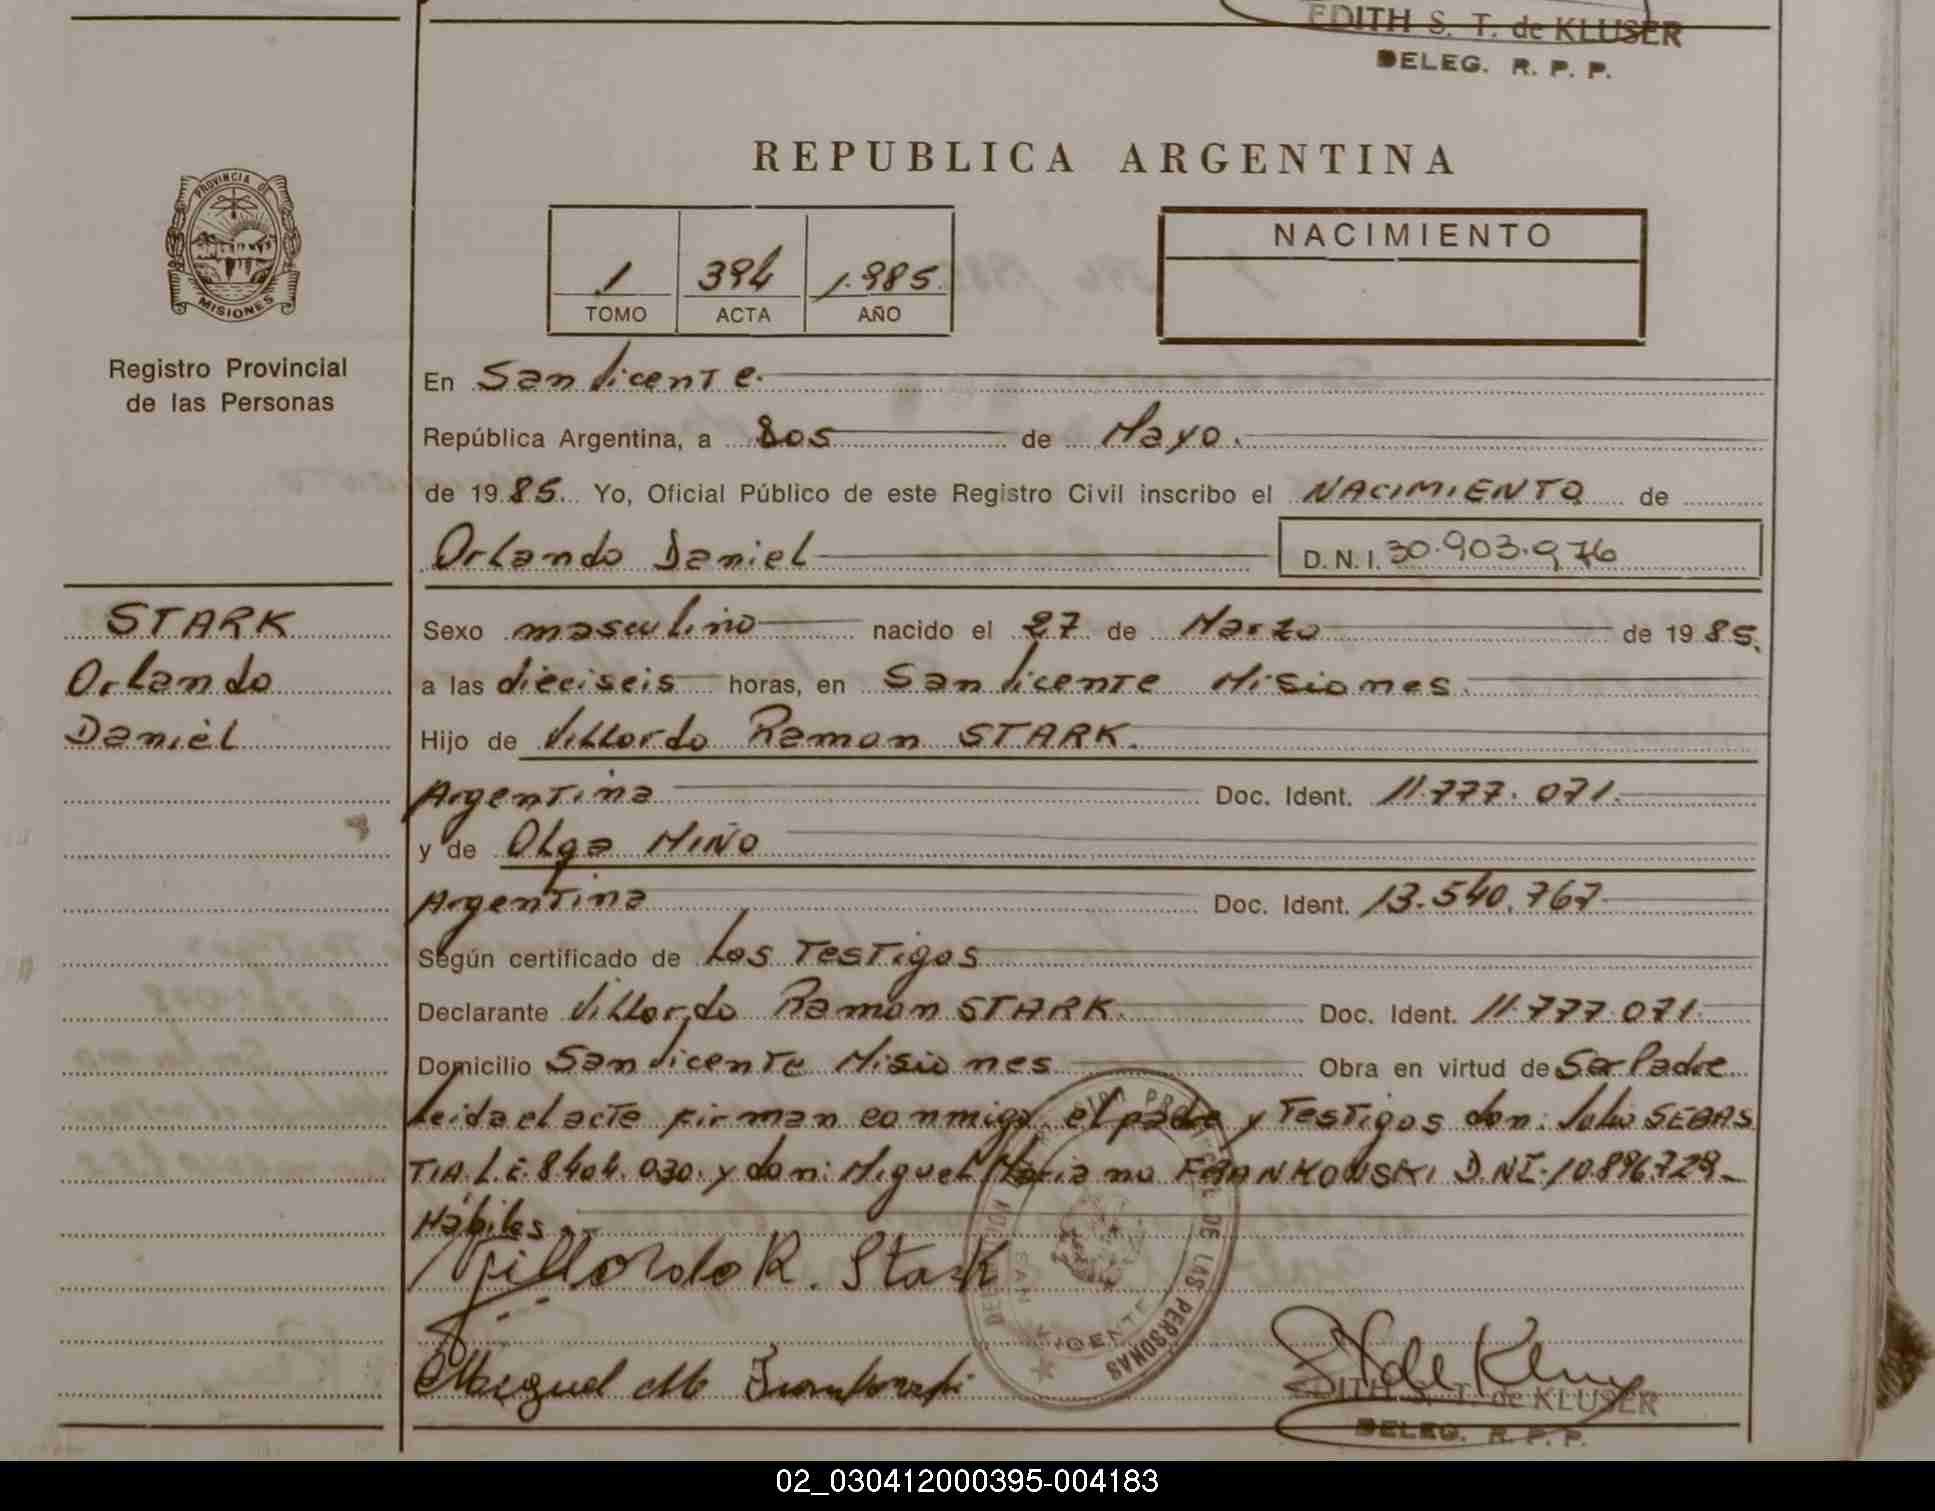 EDITH S. T. de KLUSER
DELEG. R. P. P.
REPUBLICA ARGENTINA
PROVINCIA DE
MISIONES
Registro Provincial
de las Personas
1 394 1.985.
TOMO ACTA AÑO
NACIMIENTO
En San Vicente.
República Argentina, a dos de Mayo.
de 1985 Yo, Oficial Público de este Registro Civil inscribo el NACIMIENTO de
Orlando Daniel D.N.I. 30.903.976
STARK
Orlando
Daniel
Sexo masculino nacido el 27 de Marzo de 1985.
a las dieciseis horas, en San Vicente Misiones.
Hijo de Villordo Ramon STARK.
Argentina Doc. Ident. 11.777.071.
y de Olga MIÑO
Argentina Doc. Ident. 13.540.767
Según certificado de Los Testigos
Declarante Villordo Ramon STARK. Doc. Ident. 11.777.071.
Domicilio San Vicente Misiones Obra en virtud de Ser Padre
Leida el acta firman conmigo el padre y Testigos don: Julio SEBAS
TIA. L.E. 8.404.030. y don: Miguel Mariano FRANKOWSKI D.NI. 10.896.729
Hábiles
Villordo R. Stark
DE LAS PERSONAS
SAN VICENTE
Miguel M Frankowski
EDITH S. T. de KLUSER
DELEG. R. P. P.
02_030412000395-004183